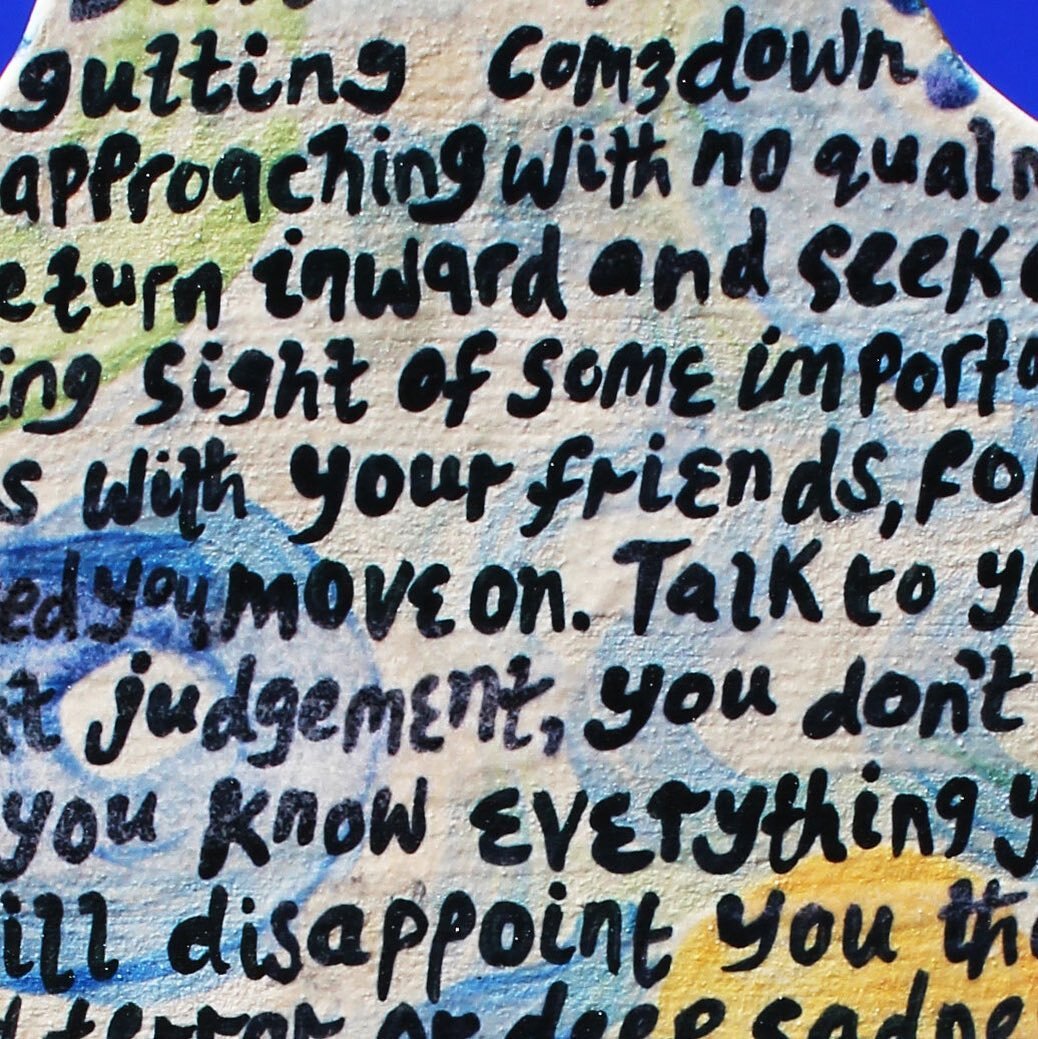 gutting comedown
approaching with no qual
turn inward and seek
ing sight of some import
s with your friends, for
ed you move on. Talk to y
it judgement, you don't
you know everything y
ill disappoint you th
terror or deep sadne